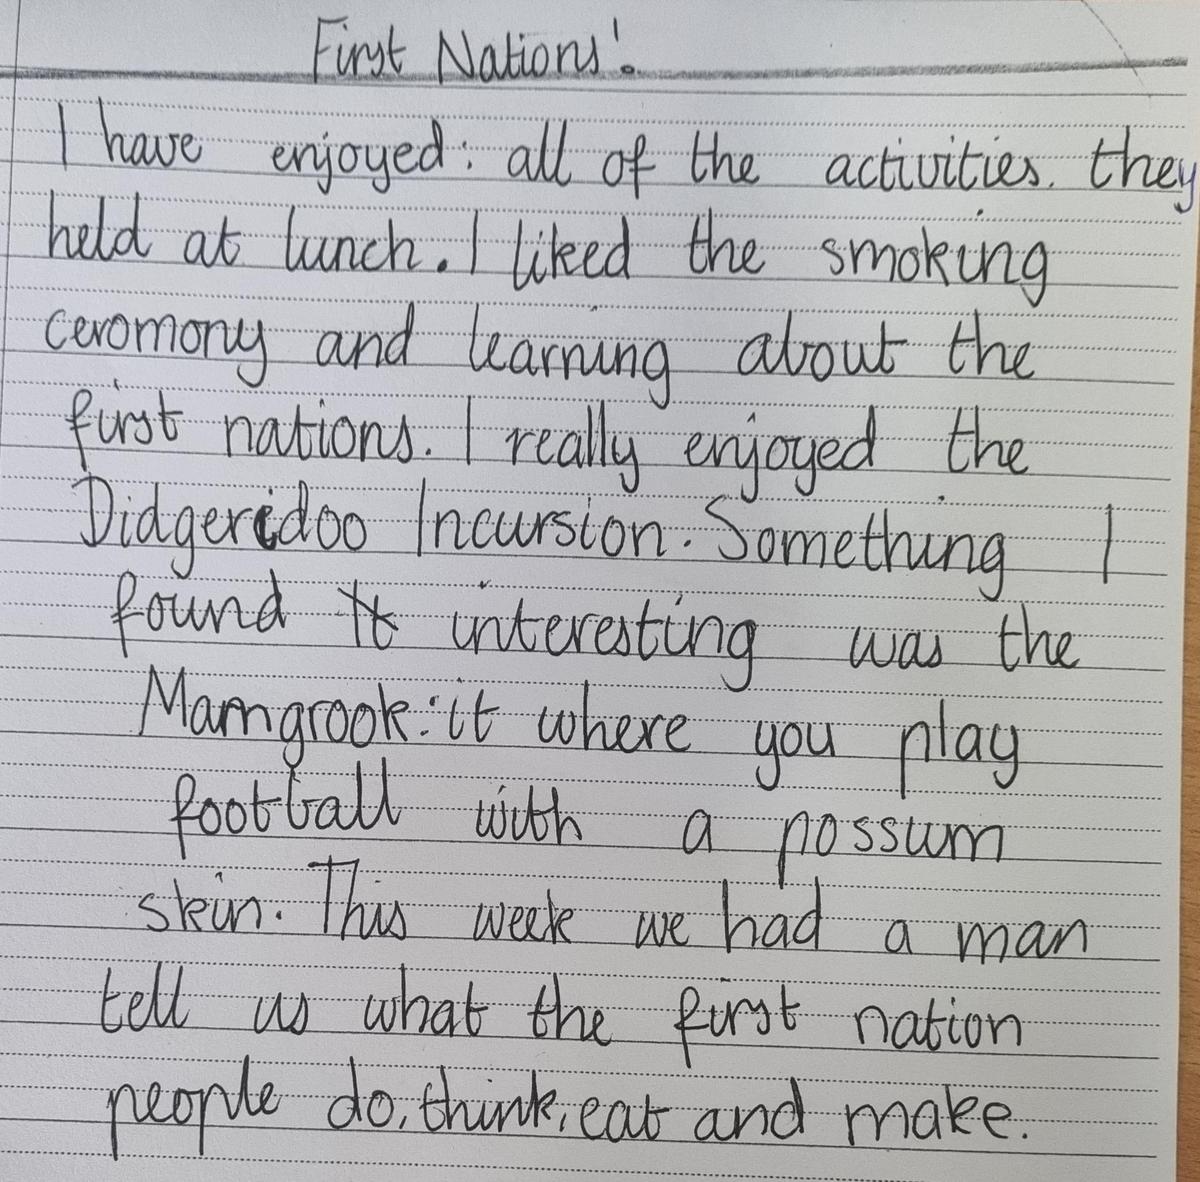 First Nations'.
I have enjoyed: all of the activities. they
held at lunch. I liked the smoking
ceromony and learning about the
first nations. I really enjoyed the
Didgeridoo Incursion. Something I
found It interesting was the
Marngrook: it where you play
football with a possum
skin. This week we had a man
tell us what the first nation
people do, think, eat and make.